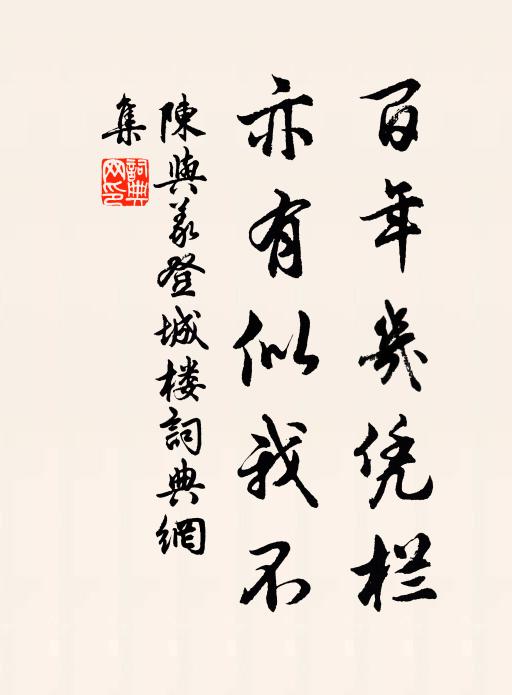 百年幾凭栏
亦有似我不
陳與義登城楼詞典網
集
詞典網印